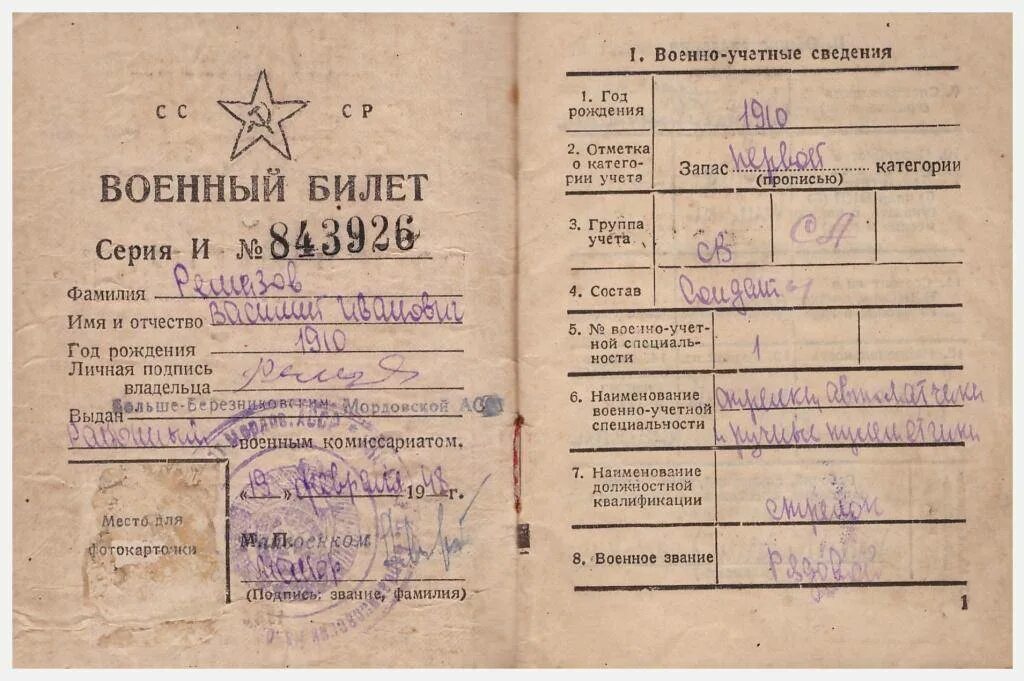 СС СР
ВОЕННЫЙ БИЛЕТ
Серия И № 843926
Фамилия Ремизов
Имя и отчество Василий Иванович
Год рождения 1910
Личная подпись
владельца
Больше-Березниковским Мордовской АССР
Выдан
Районный военным комиссариатом.
Место для
фотокарточки
«19» февраля 1948 г.
М.П.
Майор
(Подпись: звание, фамилия)
I. Военно-учетные сведения
1. Год
рождения
1910
2. Отметка
о катего-
рии учета
Запас первой категории
(прописью)
3. Группа
учета
СВ
СА
4. Состав
Солдаты
5. № военно-учет-
ной специаль-
ности
1
6. Наименование
военно-учетной
специальности
стрелки, автоматчики
и ручные пулеметчики
7. Наименование
должностной
квалификации
стрелок
8. Военное звание
Рядовой
1